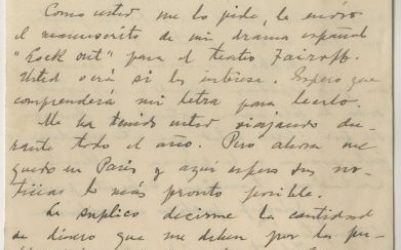 Como usted me lo pide, le envio
el manuscrito de mi drama español
"Lock out" para el teatro Tairoff.
Usted verá si les interesa. Espero que
comprenderá mi letra para leerlo.
Me ha tenido usted viajando du-
rante todo el año. Pero ahora me
quedo en París y aquí espero sus no-
ticias lo más pronto posible.
Le suplico decirme la cantidad
de dinero que me deben por la pu-